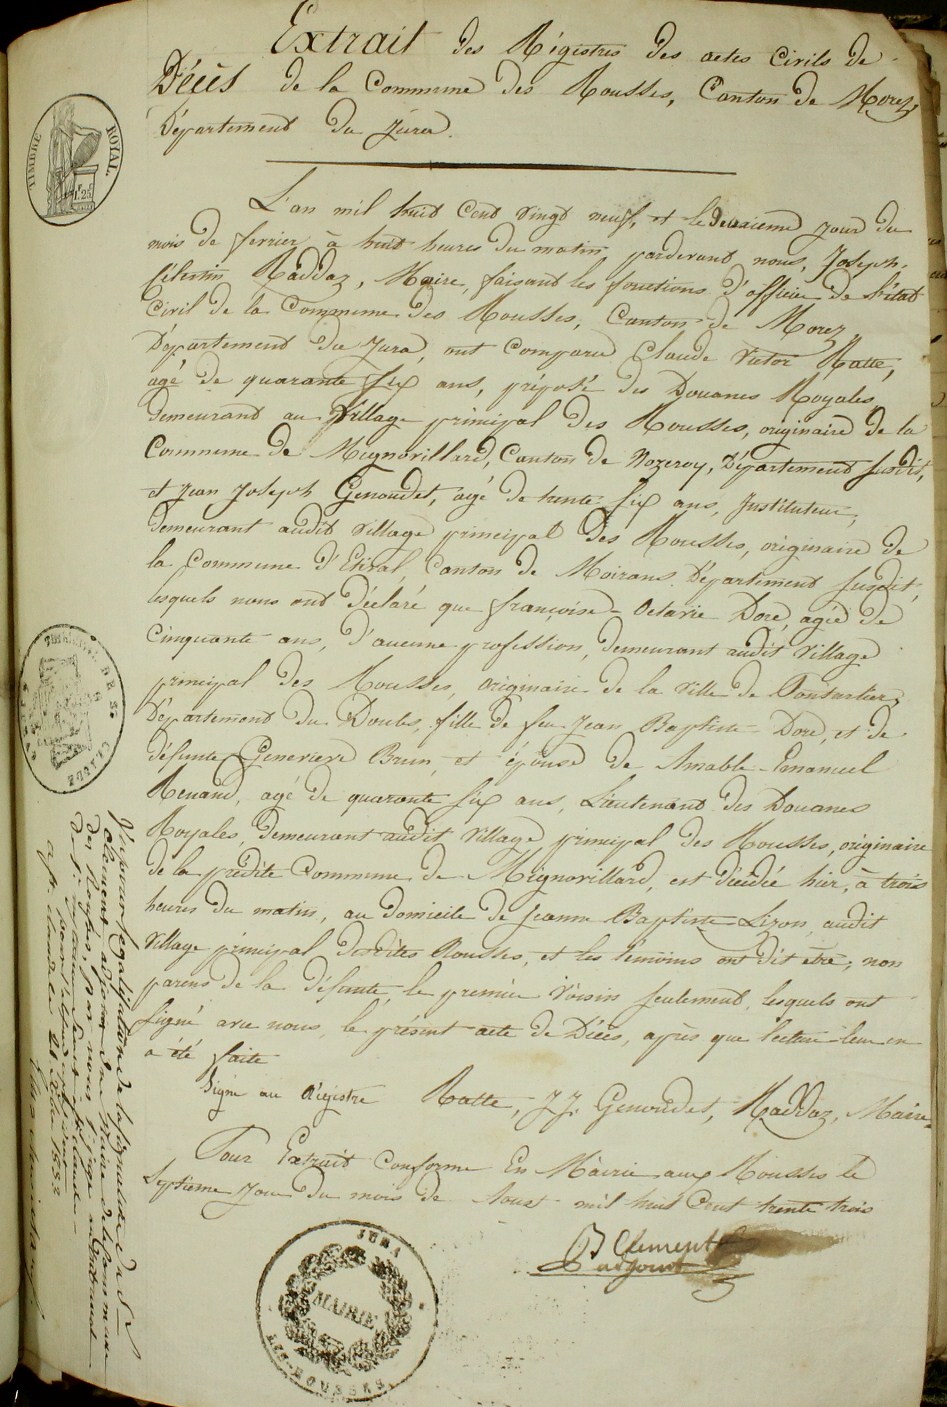 Extrait des Régistres des actes Civils de
Décès de la Commune des Rousses, Canton de Morez,
Département du Jura.
TIMBRE ROYAL.
1f 25c
L'an mil huit Cent vingt neuf, et le deuxieme jour du
mois de fevrier à huit heures du matin, pardevant nous, Joseph-
Célestin Raddaz, Maire, faisant les fonctions d'officier de l'état
Civil de la Commune des Rousses, Canton de Morez
Département du Jura, ont comparu Claude Victor Ratte,
agé de quarante six ans, préposé des Douanes Royales,
demeurant au Village principal des Rousses, originaire de la
Commune de Mignovillard, Canton de Nozeroy, Département susdit,
et Jean Joseph Genoudet, agé de trente six ans, Instituteur,
demeurant audit village principal des Rousses, originaire de
la Commune d'Etival, Canton de Moirans, Département susdit,
lesquels nous ont déclaré que françoise-Octavie Doré, agée de
Cinquante ans, d'aucune profession, demeurant audit Village
principal des Rousses, originaire de la ville de Pontarlier,
Département du Doubs, fille de feu Jean Baptiste Doré, et de
défunte Genevieve Brun, et épouse de Amable-Emanuel
Renaud, agé de quarante six ans, Lieutenant des Douanes
Royales, demeurant audit village principal des Rousses, originaire
de la prédite Commune de Mignovillard, est décédée hier, à trois
heures du matin, au domicile de Jeanne Baptiste Lizon, audit
Village principal desdites Rousses, et les témoins ont dit être, non
parens de la défunte, le premier voisin seulement, lesquels ont
signé avec nous, le présent acte de Décès, après que lecture leur en
a été faite
Signé au Régistre Ratte, J. J. Genoudet, Raddaz, Maire.
Pour Extrait Conforme En Mairie aux Rousses le
Septieme jour du mois de Aoust mil huit Cent trente trois
B Clement
adjoint
JURA
MAIRIE
LES-ROUSSES
CLAUDE
Vu pour légalisation de la signature du Sr
Clement adjoint du Maire de la commune
des Rousses, par nous juge au tribunal
de 1re instance Séant à St Claude